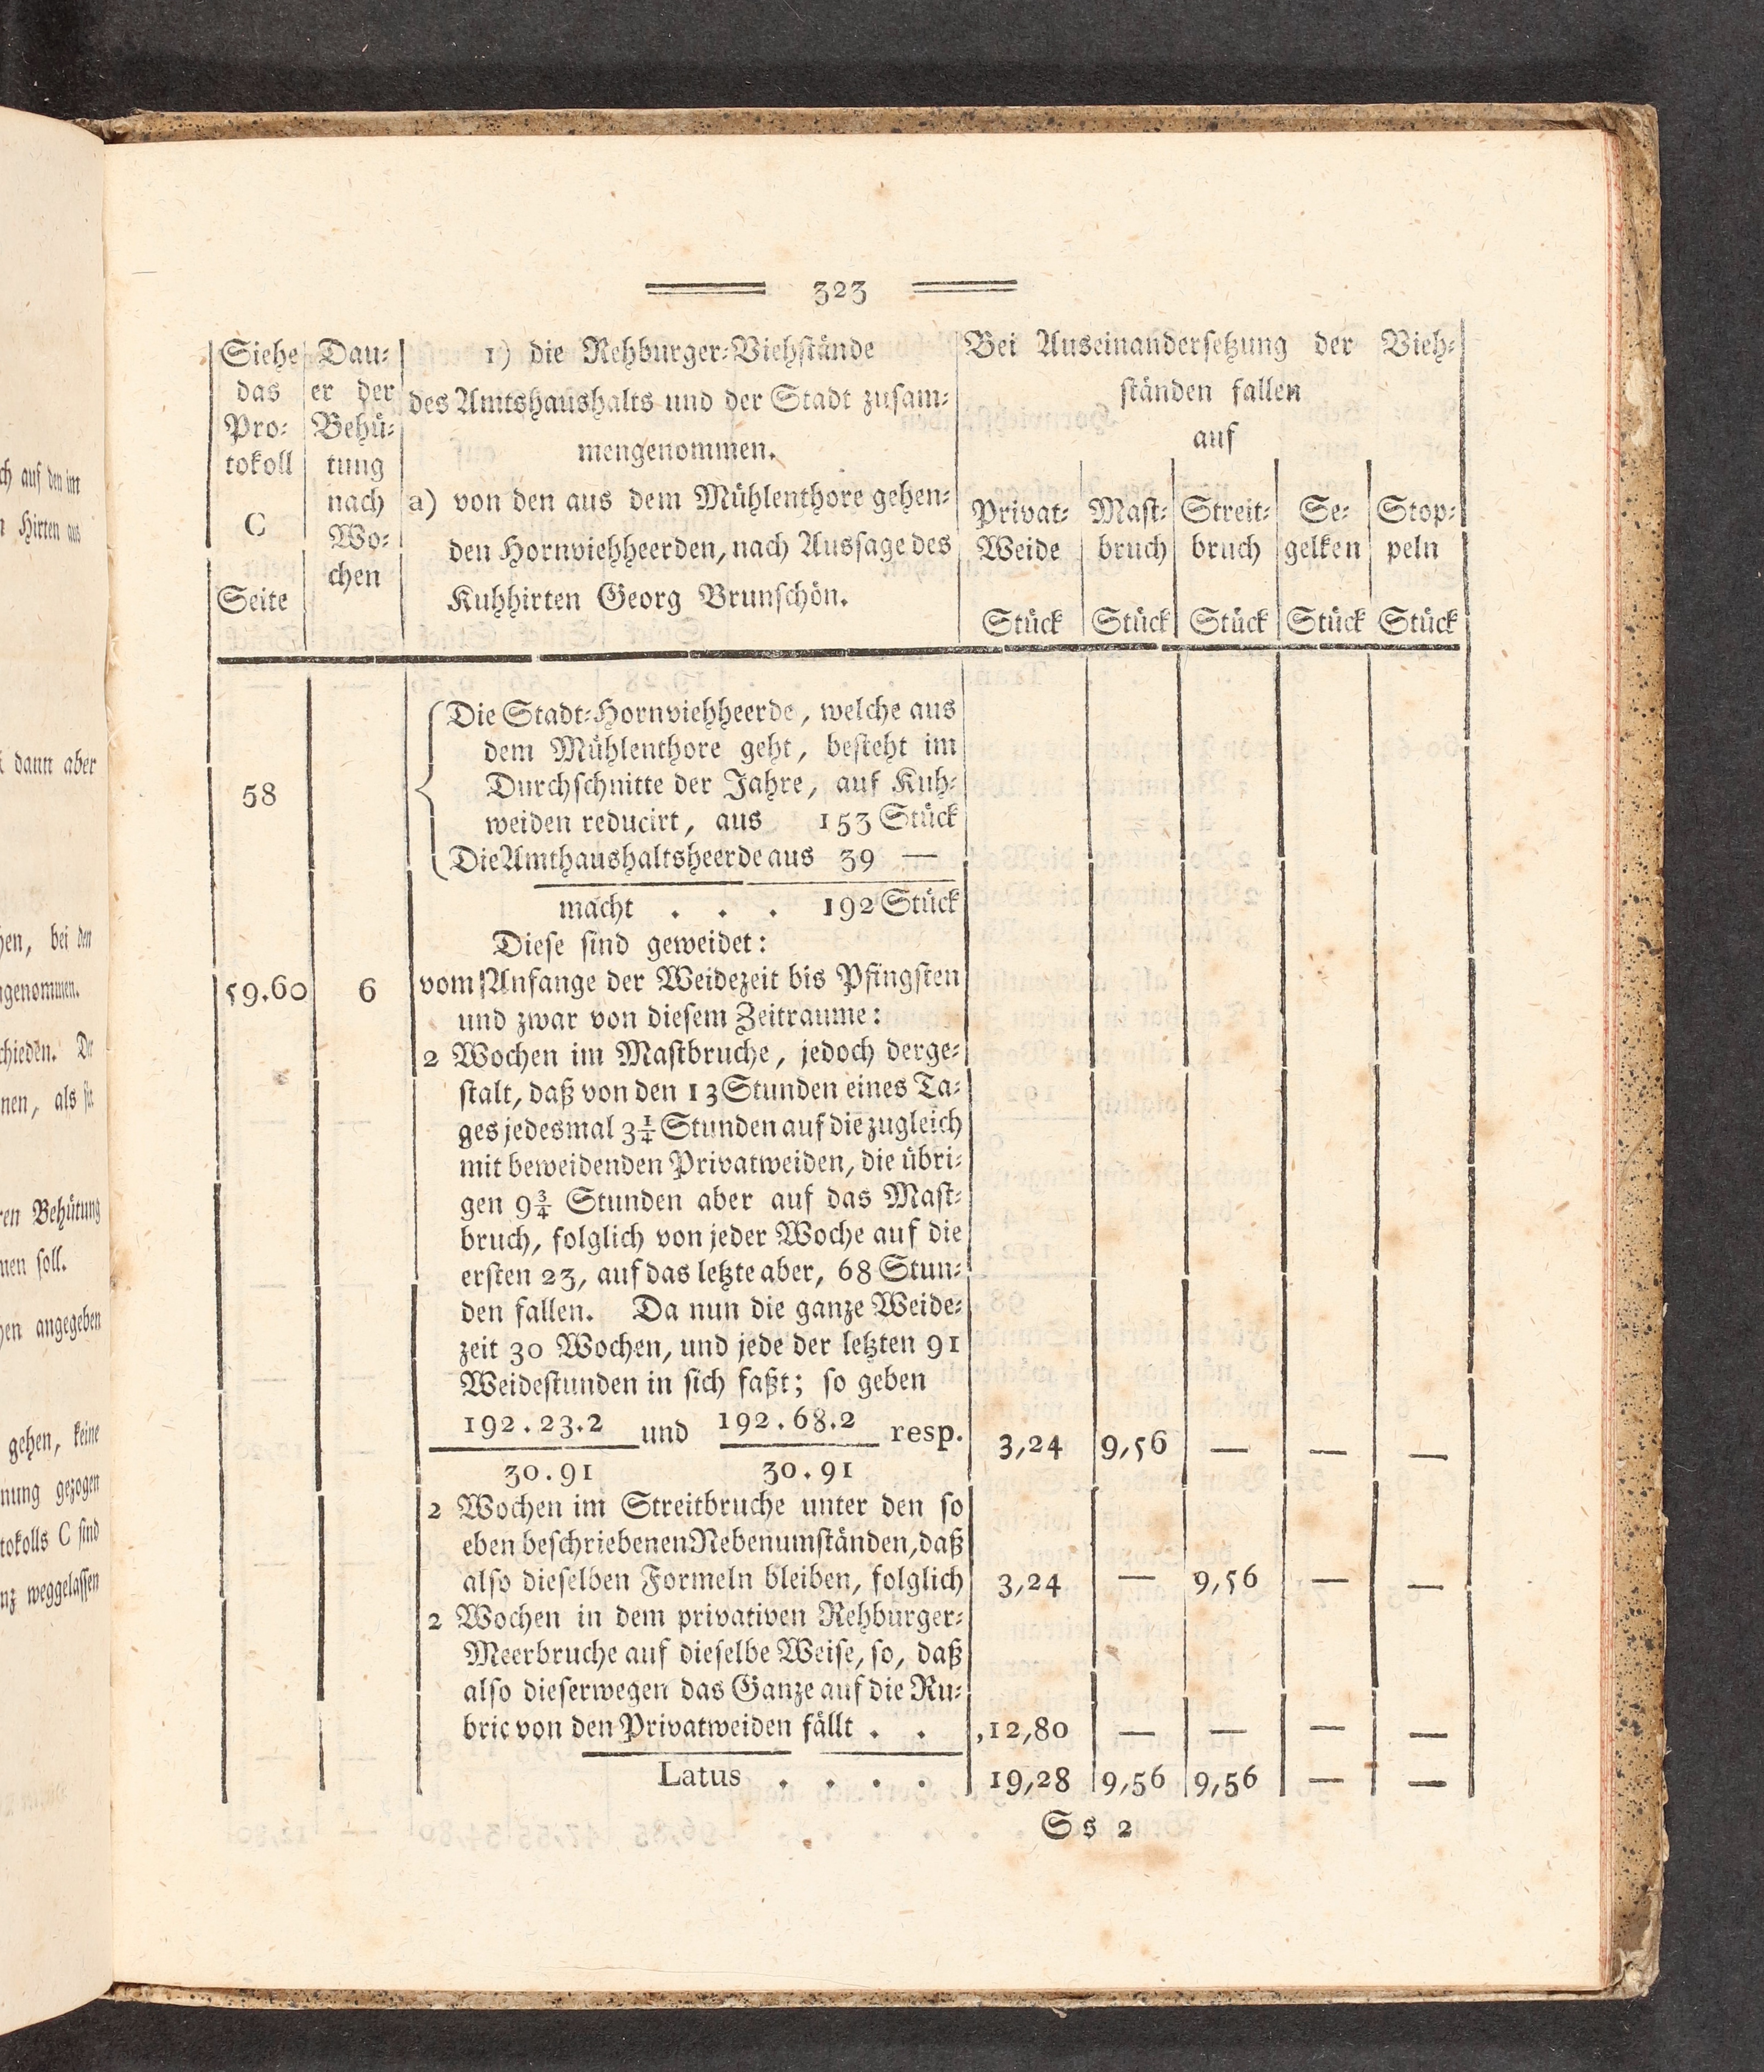 323
Siehe das Pro⸗ tokoll C Seite
Dau⸗ er der Behü⸗ tung nach Wo⸗ chen
1) die Rehburger⸗Viehstände
des Amtshaushalts und der Stadt zusam⸗
mengenommen.
a) von den aus dem Mühlenthore gehen⸗
den Hornviehheerden, nach Aussage des
Kuhhirten Georg Brunschön.
Bei Auseinandersetzung der Vieh⸗
ständen fallen
auf
Privat⸗ Mast⸗ Streit⸗ Se⸗ Stop⸗
Weide bruch bruch gelken peln
Stück Stück Stück Stück Stück
Die Stadt⸗Hornviehheerde, welche aus
dem Mühlenthore geht, besteht im
58 Durchschnitte der Jahre, auf Kuh⸗
weiden reducirt, aus 153 Stück
Die Amthaushaltsheerde aus 39 —
macht . . . 192 Stück
Diese sind geweidet:
59.60 6 vom Anfange der Weidezeit bis Pfingsten
und zwar von diesem Zeitraume:
2 Wochen im Mastbruche, jedoch derge⸗
stalt, daß von den 13 Stunden eines Ta⸗
ges jedesmal 3¼ Stunden auf die zugleich
mit beweidenden Privatweiden, die übri⸗
gen 9¾ Stunden aber auf das Mast⸗
bruch, folglich von jeder Woche auf die
ersten 23, auf das letzte aber, 68 Stun⸗
den fallen. Da nun die ganze Weide⸗
zeit 30 Wochen, und jede der letzten 91
Weidestunden in sich faßt; so geben
192.23.2 und 192.68.2 resp. 3,24 9,56 — — —
30.91 30.91
2 Wochen im Streitbruche unter den so
eben beschriebenen Nebenumständen, daß
also dieselben Formeln bleiben, folglich 3,24 — 9,56 — —
2 Wochen in dem privativen Rehburger⸗
Meerbruche auf dieselbe Weise, so, daß
also dieserwegen das Ganze auf die Ru⸗
bric von den Privatweiden fällt . . ,12,80 — — — —
Latus . . . . 19,28 9,56 9,56 — —
Ss 2
ch auf den im
Hirten aus
dann aber
hen, bei den
genommen.
chieden. Der
nen, als sie
ren Behütung
nen soll.
hen angegeben
gehen, keine
nung gezogen
tokolls C sind
nz weggelassen